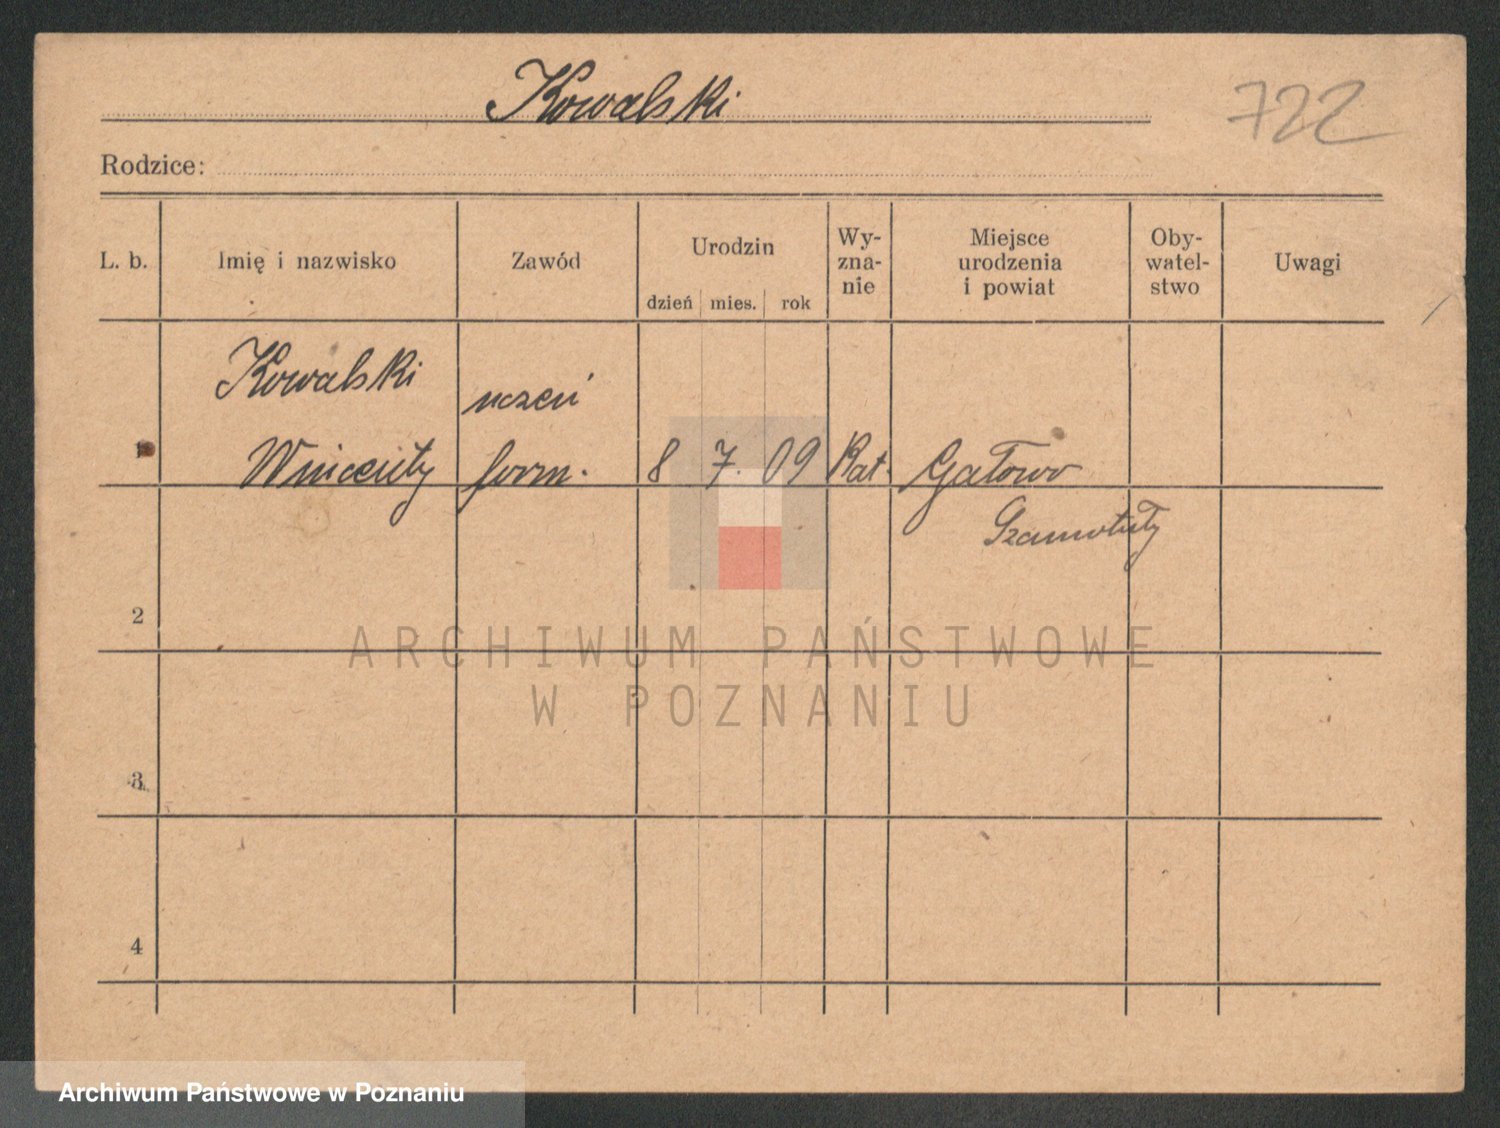 Kowalski
722
Rodzice:
L. b.
Imię i nazwisko
Zawód
Urodzin
dzień mies. rok
Wy-
zna-
nie
Miejsce
urodzenia
i powiat
Oby-
watel-
stwo
Uwagi
Kowalski uczeń
1 Wincenty form. 8 7. 09 Kat. Gałowo
Szamotuły
2
3
4
ARCHIWUM PAŃSTWOWE
W POZNANIU
Archiwum Państwowe w Poznaniu